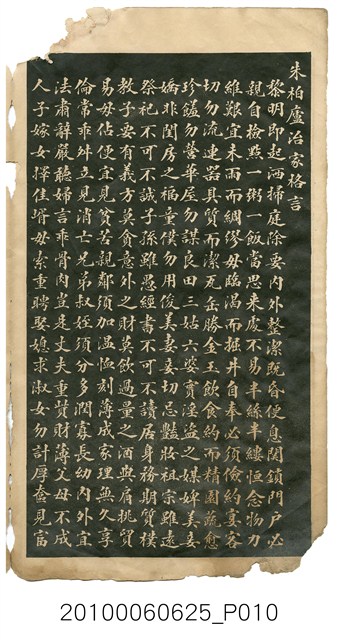 朱柏廬治家格言
黎明即起洒掃庭除要內外整潔既昏便息關鎖門戶必
親自檢點一粥一飯當思來處不易半絲半縷恒念物力
維艱宜未雨而綢繆毋臨渴而掘井自奉必須儉約宴客
切勿流連器具質而潔瓦缶勝金玉飲食約而精園蔬愈
珍饈勿營華屋勿謀良田三姑六婆實淫盜之媒婢美妾
嬌非閨房之福童僕勿用俊美妻妾切忌豔妝祖宗雖遠
祭祀不可不誠子孫雖愚經書不可不讀居身務期質樸
教子要有義方莫貪意外之財莫飲過量之酒與肩挑貿
易毋佔便宜見貧苦親鄰須加溫恤刻薄成家理無久享
倫常乖舛立見消亡兄弟叔姪須分多潤寡長幼內外宜
法肅辭嚴聽婦言乖骨肉豈是丈夫重貲財薄父母不成
人子嫁女擇佳壻毋索重聘娶媳求淑女勿計厚奩見富
20100060625_P010